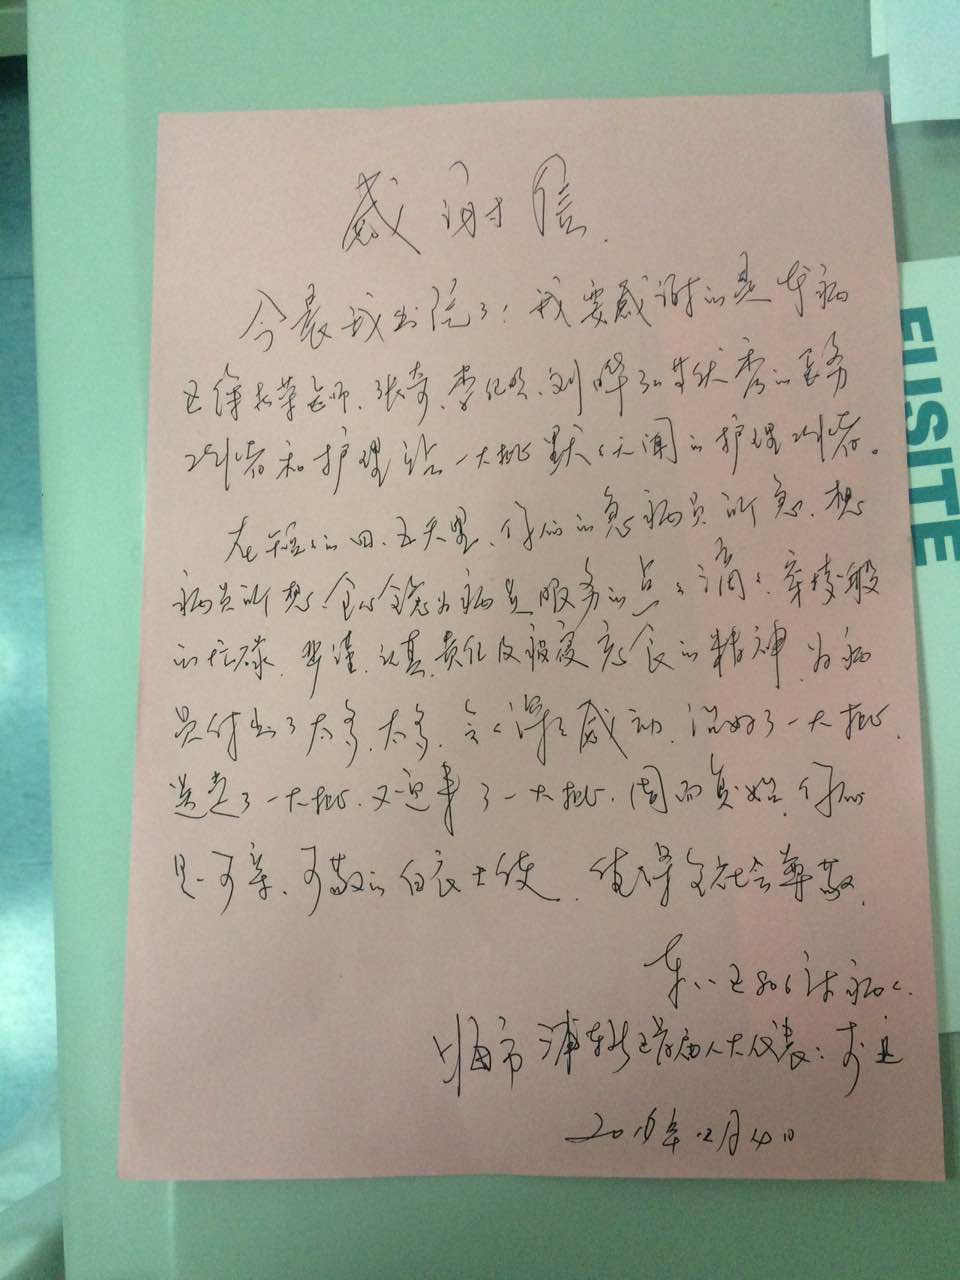 感谢信
今晨我出院了!我要感谢的是本病
区徐 荣老师、张奇、李 、刘晔 等优秀的医务
工作者和护理站一大批默默无闻的护理工作者。
在短短的四、五天里、你们的急病员所急、想
病员所想、全心全意为病员服务的点点滴滴、穿梭般
的忙碌、严谨、认真、责任及废寝忘食的精神、为病
员付出了太多、太多、 深深感动、治好了一大批、
送走了一大批、又迎来了一大批、周而复始、你们
是可亲、可敬的白衣天使、值得全社会尊敬、
东八区806床病人
上海市浦东新区首届人大代表:
2016年12月4日
EUSITE